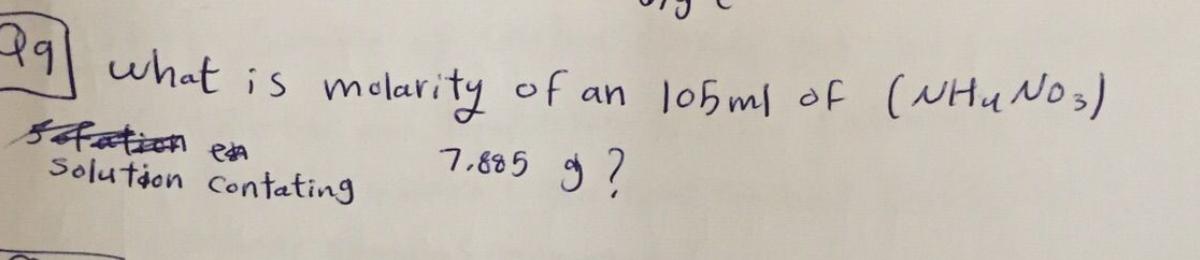 Q9 what is molarity of an 105ml of (NH4NO3)
Solution contating 7.885 g ?